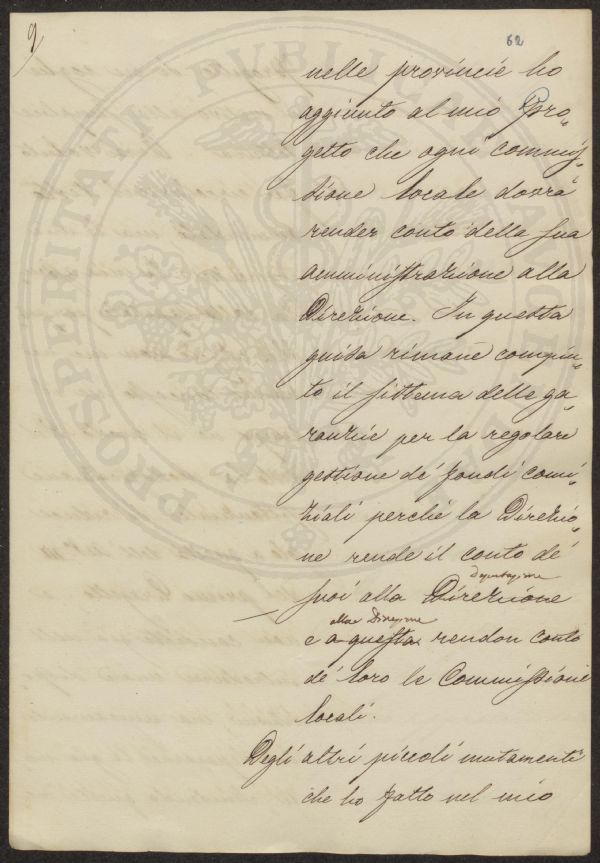 9
62
nelle provincie ho
aggiunto al mio Pro-
getto che ogni commis-
sione locale dovrà
render conto della sua
amministrazione alla
Direzione. In questa
guisa rimane compiu-
to il sistema delle ga-
ranzie per la regolare
gestione de' fondi comi-
ziali perchè la Direzio-
ne rende il conto de'
deputazione
suoi alla Direzione
alla Direzione
e a questa rendon conto
de' loro le Commissioni
locali.
Degli altri piccoli mutamenti
che ho fatto nel mio